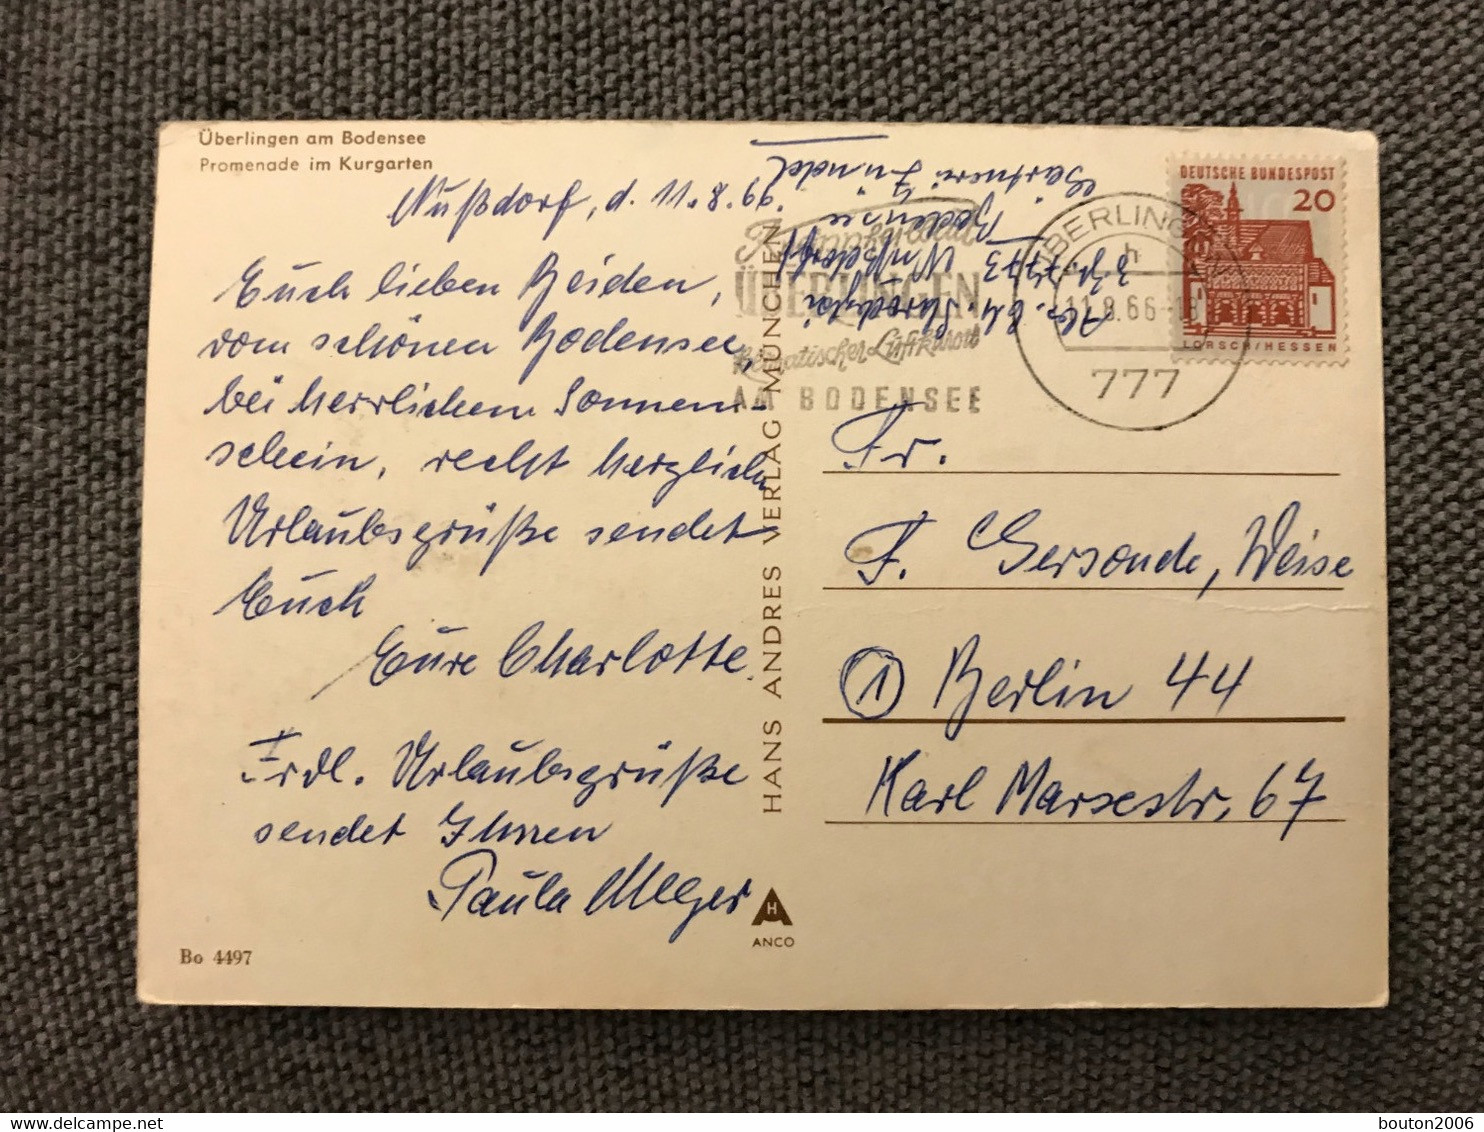 Überlingen am Bodensee
Promenade im Kurgarten
Nußdorf, d. 11.8.66.
Euch lieben Beiden,
vom schönen Bodensee,
bei herrlichem Sonnen-
schein, recht herzliche
Urlaubsgrüße sendet
Euch
Eure Charlotte.
Frdl. Urlaubsgrüße
sendet Ihnen
Paula Meyer
Bo 4497
HANS ANDRES VERLAG MÜNCHEN
H
ANCO
Kneippheilbad
ÜBERLINGEN
Klimatischer Luftkurort
AM BODENSEE
ÜBERLINGEN
h
11.8.66-18
777
DEUTSCHE BUNDESPOST
20
LORSCH/HESSEN
Abs. Ch.
z. Zt. 7773 Nußdorf
Bodensee
Gärtnerei Zündel
Fr.
F. Gersonde, Weise
1 Berlin 44
Karl Marxestr. 67
bouton2006